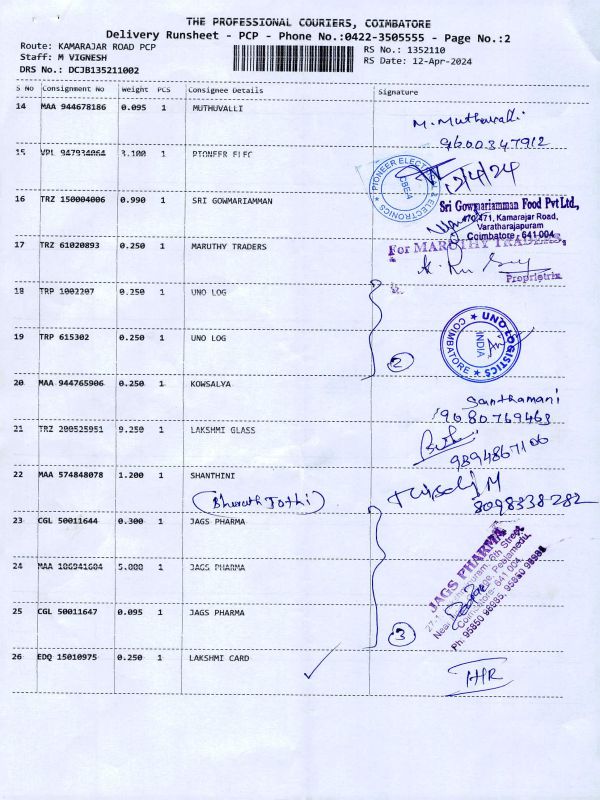 THE PROFESSIONAL COURIERS, COIMBATORE
Delivery Runsheet - PCP - Phone No.:0422-3505555 - Page No.:2
Route: KAMARAJAR ROAD PCP
Staff: M VIGNESH
DRS No.: DCJB135211002
RS No.: 1352110
RS Date: 12-Apr-2024
S No Consignment No Weight PCS Consignee Details Signature
14 MAA 944678186 0.095 1 MUTHUVALLI
M. Muthuvalli
9600347912
15 VPL 947934064 3.100 1 PIONEER ELEC
PIONEER ELECTRICAL & ELECTRONICS
CBE-4
12/4/24
16 TRZ 150004006 0.990 1 SRI GOWMARIAMMAN
Sri Gowmariamman Food Pvt Ltd.,
470,471, Kamarajar Road,
Varatharajapuram
Coimbatore - 641 004
17 TRZ 61020893 0.250 1 MARUTHY TRADERS
For MARUTHY TRADERS
Proprietrix
18 TRP 1002207 0.250 1 UNO LOG
19 TRP 615302 0.250 1 UNO LOG
2
★ UNO LOGISTICS ★ COIMBATORE
INDIA
20 MAA 944765906 0.250 1 KOWSALYA
Santhamani
9680769463
21 TRZ 200525951 9.250 1 LAKSHMI GLASS
9894867106
22 MAA 574848078 1.200 1 SHANTHINI
Bharath Jothi
8098338282
23 CGL 50011644 0.300 1 JAGS PHARMA
24 MAA 106941604 5.000 1 JAGS PHARMA
25 CGL 50011647 0.095 1 JAGS PHARMA
3
JAGS PHARMA
6th Street
Peelamedu,
Coimbatore - 641 004
26 EDQ 15010975 0.250 1 LAKSHMI CARD